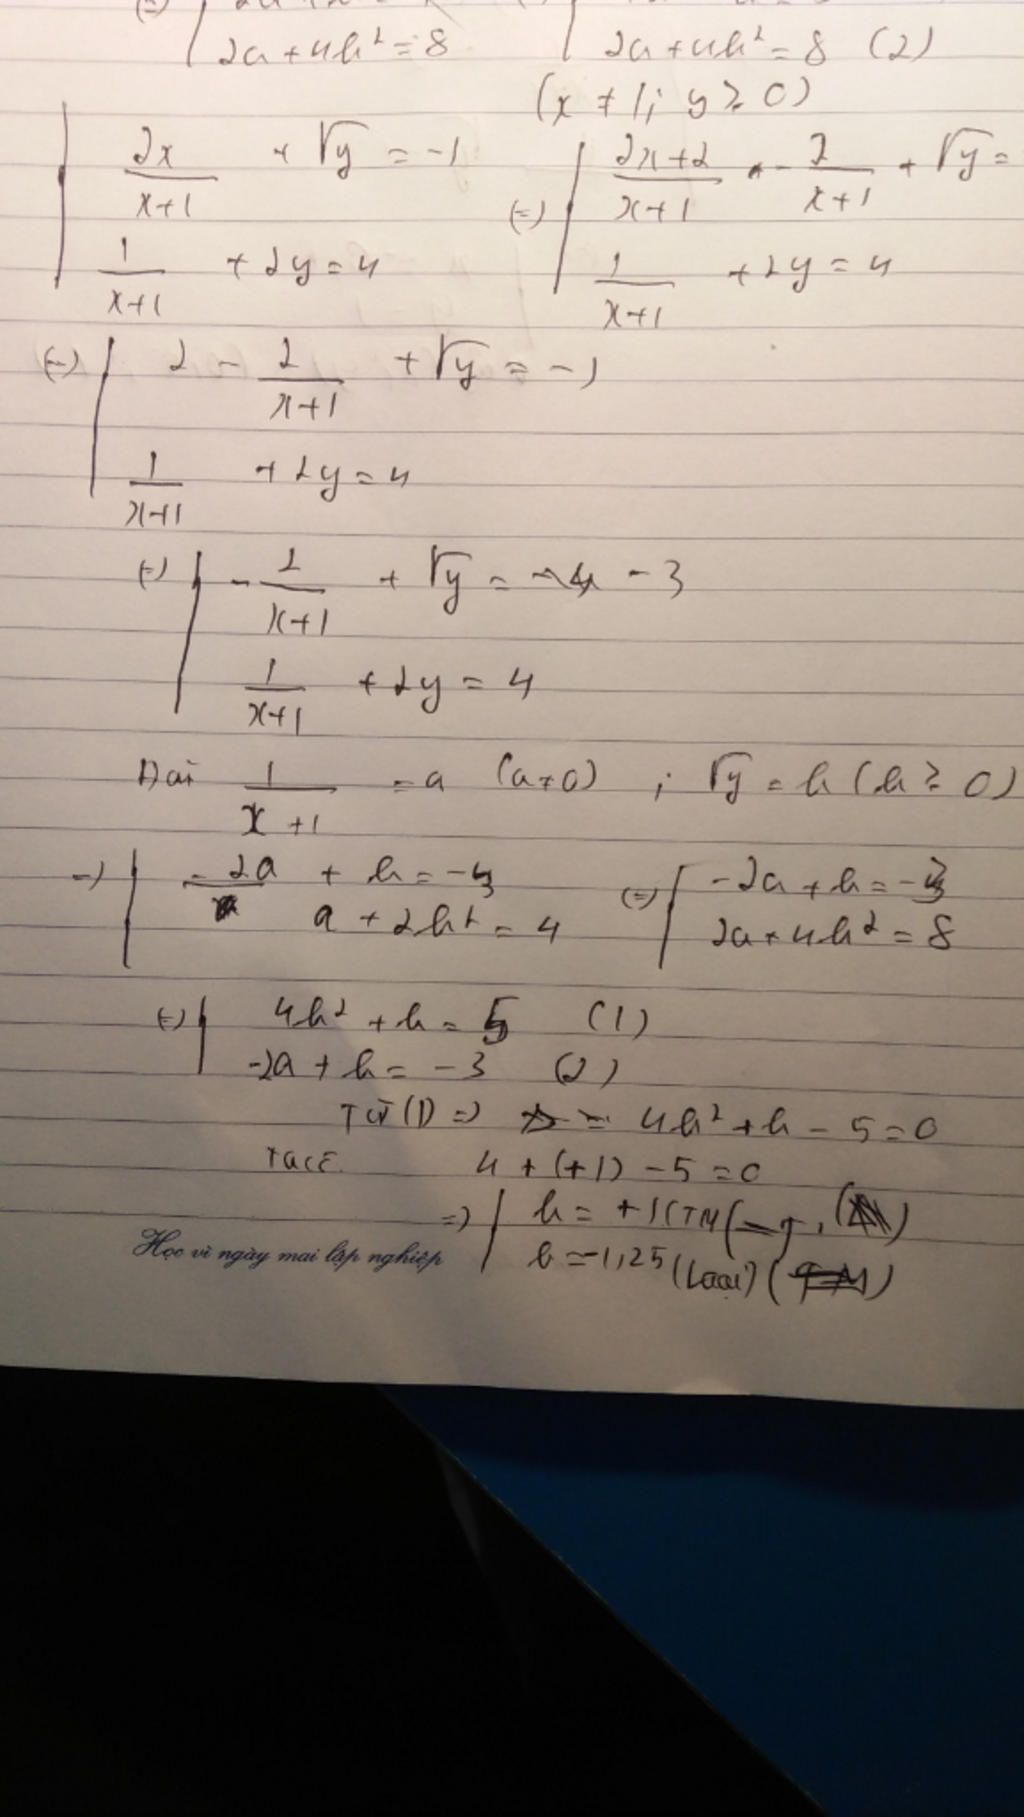 2a + 4b² = 8
2a + 4b² = 8 (2)
(x ≠ 1; y ≥ 0)
2x/(x+1) + √y = -1
(=) (2x+2)/(x+1) - 2/(x+1) + √y =
1/(x+1) + 2y = 4
1/(x+1) + 2y = 4
(=) 2 - 2/(x+1) + √y = -1
1/(x+1) + 2y = 4
(=) - 2/(x+1) + √y = -3
1/(x+1) + 2y = 4
Đặt 1/(x+1) = a (a≠0) ; √y = b (b ≥ 0)
=) -2a + b = -3
(=) -2a + b = -3
a + 2b² = 4
2a + 4b² = 8
(=) 4b² + b = 5 (1)
-2a + b = -3 (2)
Từ (1) =) 4b² + b - 5 = 0
Ta có 4 + (+1) - 5 = 0
=) b = +1 (TM
b = -1,25 (Loại)
Học vì ngày mai lập nghiệp